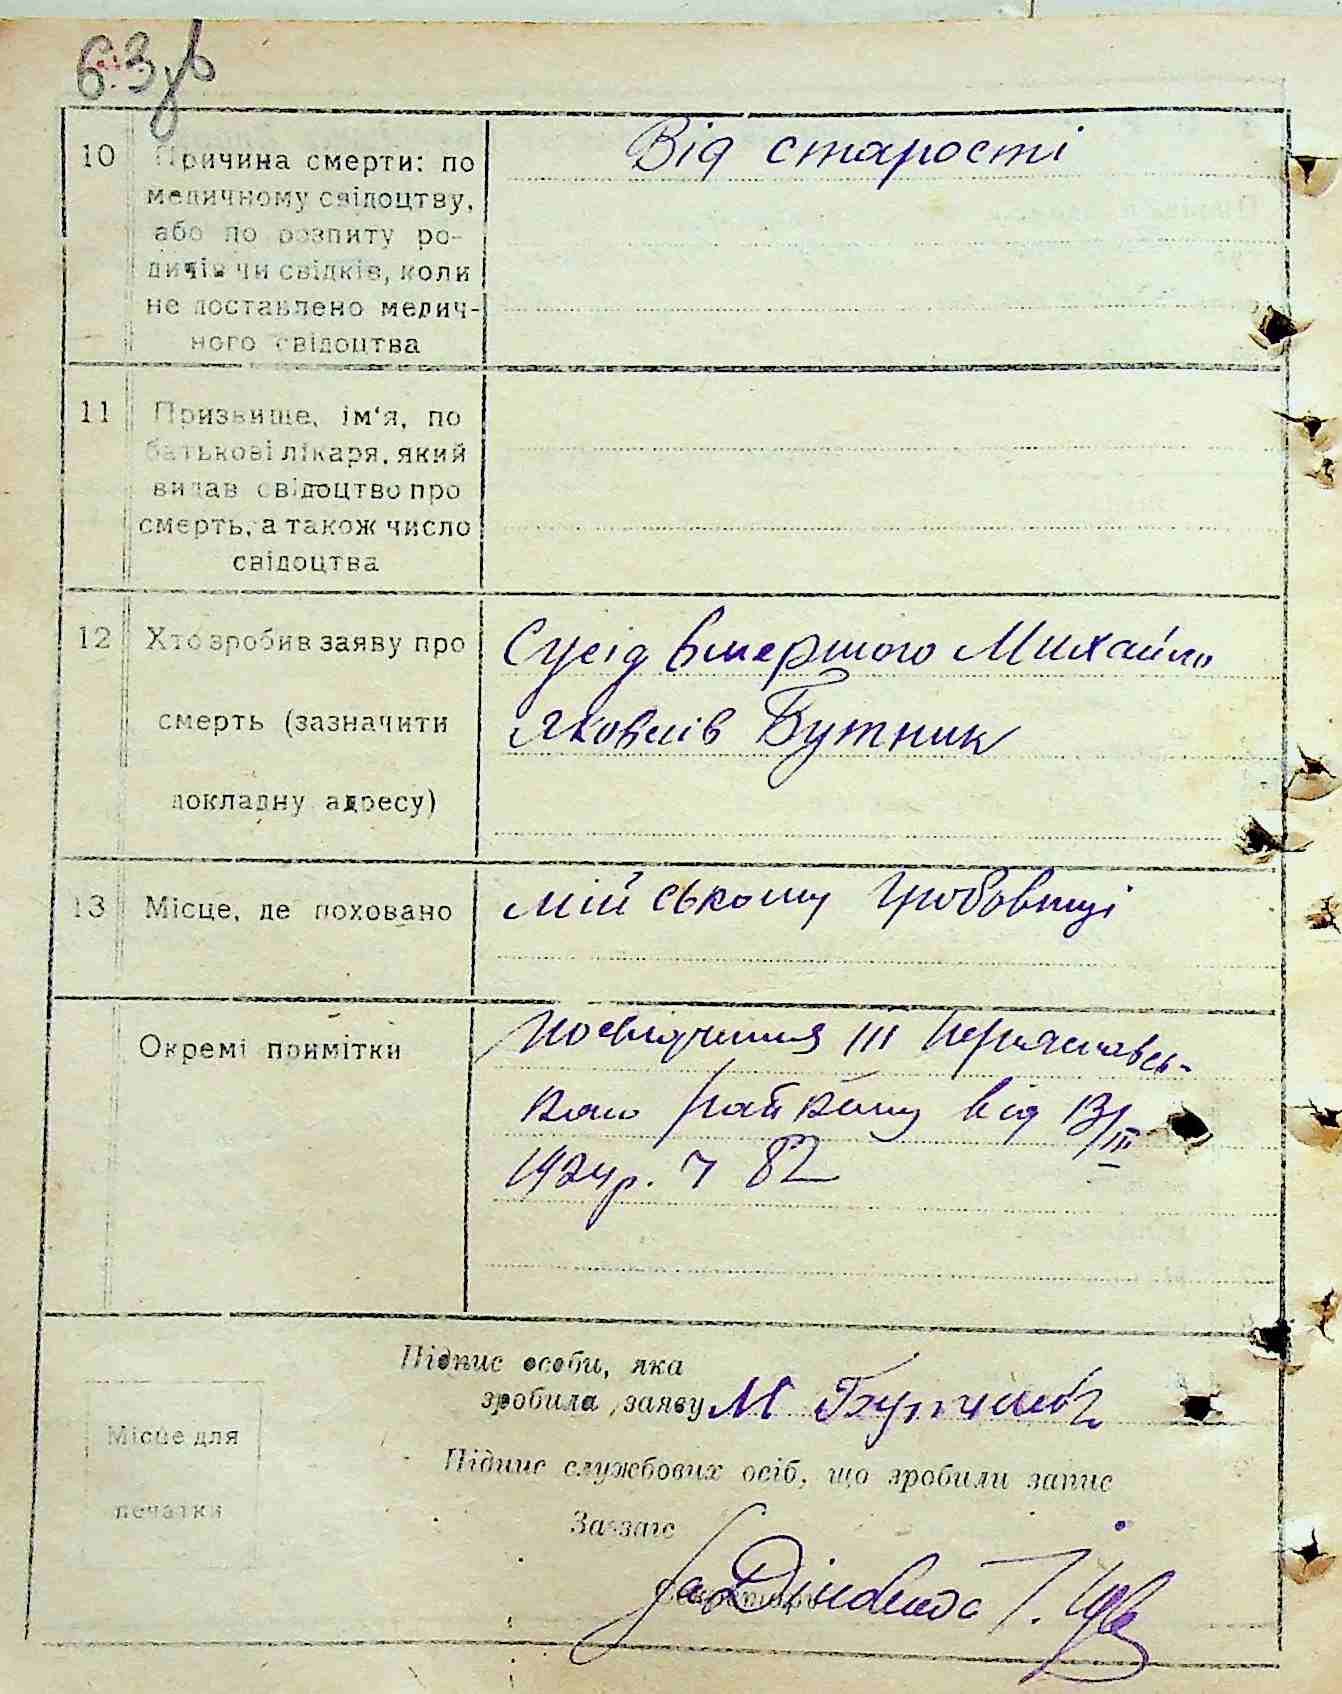 63 зв
10 Причина смерти: по
медичному свідоцтву,
або по розпиту ро-
дичів чи свідків, коли
не доставлено медич-
ного свідоцтва
Від старості
11 Призвище, ім'я, по
батькові лікаря, який
видав свідоцтво про
смерть, а також число
свідоцтва
12 Хто зробив заяву про
смерть (зазначити
докладну адресу)
Сусід вмершого Михайло
Яковлів Бутник
13 Місце, де поховано
Мійському гробовищі
Окремі примітки
Посвідчення III Переяславсь-
кого Райвіку від 13/III
1924р. Ч 82
Підпис особи, яка
зробила заяву М
Місце для
печатки
Підпис службових осіб, що зробили запис
Завзагс